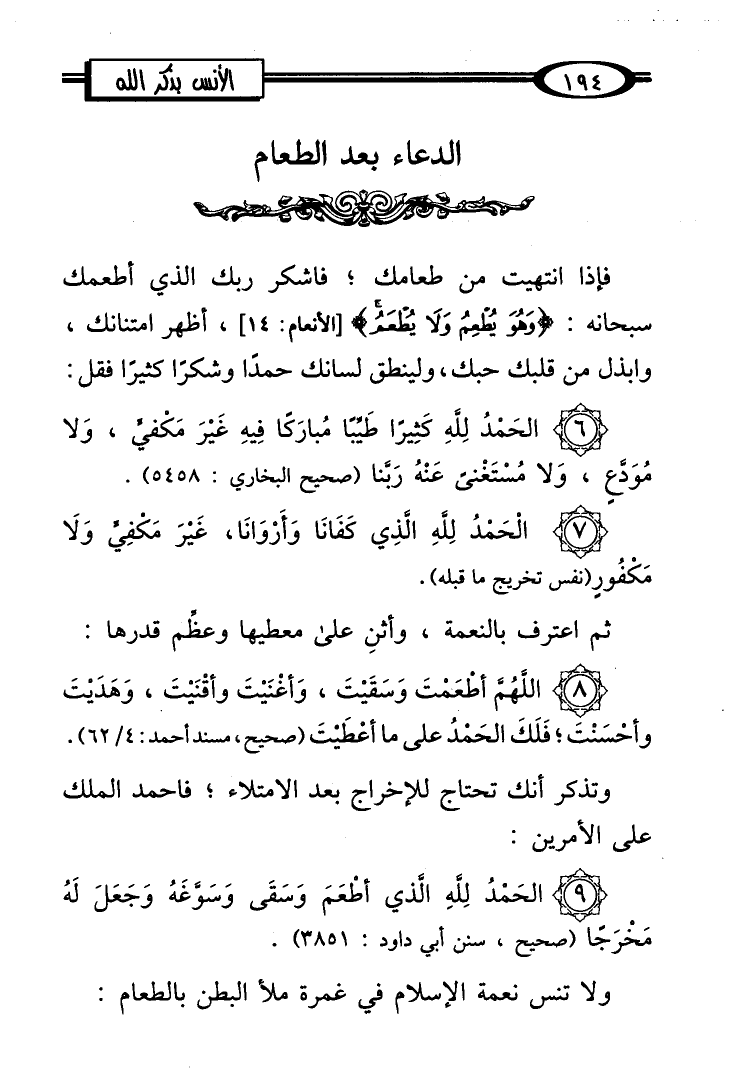 الأنس بذكر الله
١٩٤
الدعاء بعد الطعام
فإذا انتهيت من طعامك ؛ فاشكر ربك الذي أطعمك
سبحانه : ﴿وَهُوَ يُطْعِمُ وَلَا يُطْعَمُ ۗ﴾ [الأنعام: ١٤] ، أظهر امتنانك ،
وابذل من قلبك حبك، ولينطق لسانك حمدًا وشكرًا كثيرًا فقل:
٦ الحَمْدُ لِلَّهِ كَثِيرًا طَيِّبًا مُبارَكًا فِيهِ غَيْرَ مَكْفيٍّ ، وَلا
مُوَدَّعٍ ، وَلا مُسْتَغْنىً عَنْهُ رَبَّنا (صحيح البخاري : ٥٤٥٨) .
٧ الْحَمْدُ لِلَّهِ الَّذِي كَفَانَا وَأَرْوَانَا، غَيْرَ مَكْفِيٍّ وَلَا
مَكْفُورٍ(نفس تخريج ما قبله).
ثم اعترف بالنعمة ، وأثنِ علىٰ معطيها وعظِّم قدرها :
٨ اللَّهُمَّ أطْعَمْتَ وَسَقَيْتَ ، وَأغْنَيْتَ وأقْنَيْتَ ، وَهَدَيْتَ
وأحْسَنْتَ ؛ فَلَكَ الحَمْدُ على ما أعْطَيْتَ (صحيح، مسند أحمد: ٤/ ٦٢).
وتذكر أنك تحتاج للإخراج بعد الامتلاء ؛ فاحمد الملك
على الأمرين :
٩ الحَمْدُ لِلَّهِ الَّذي أطْعَمَ وَسَقَى وَسَوَّغَهُ وَجَعَلَ لَهُ
مَخْرَجًا (صحيح ، سنن أبي داود : ٣٨٥١) .
ولا تنس نعمة الإسلام في غمرة ملأ البطن بالطعام :